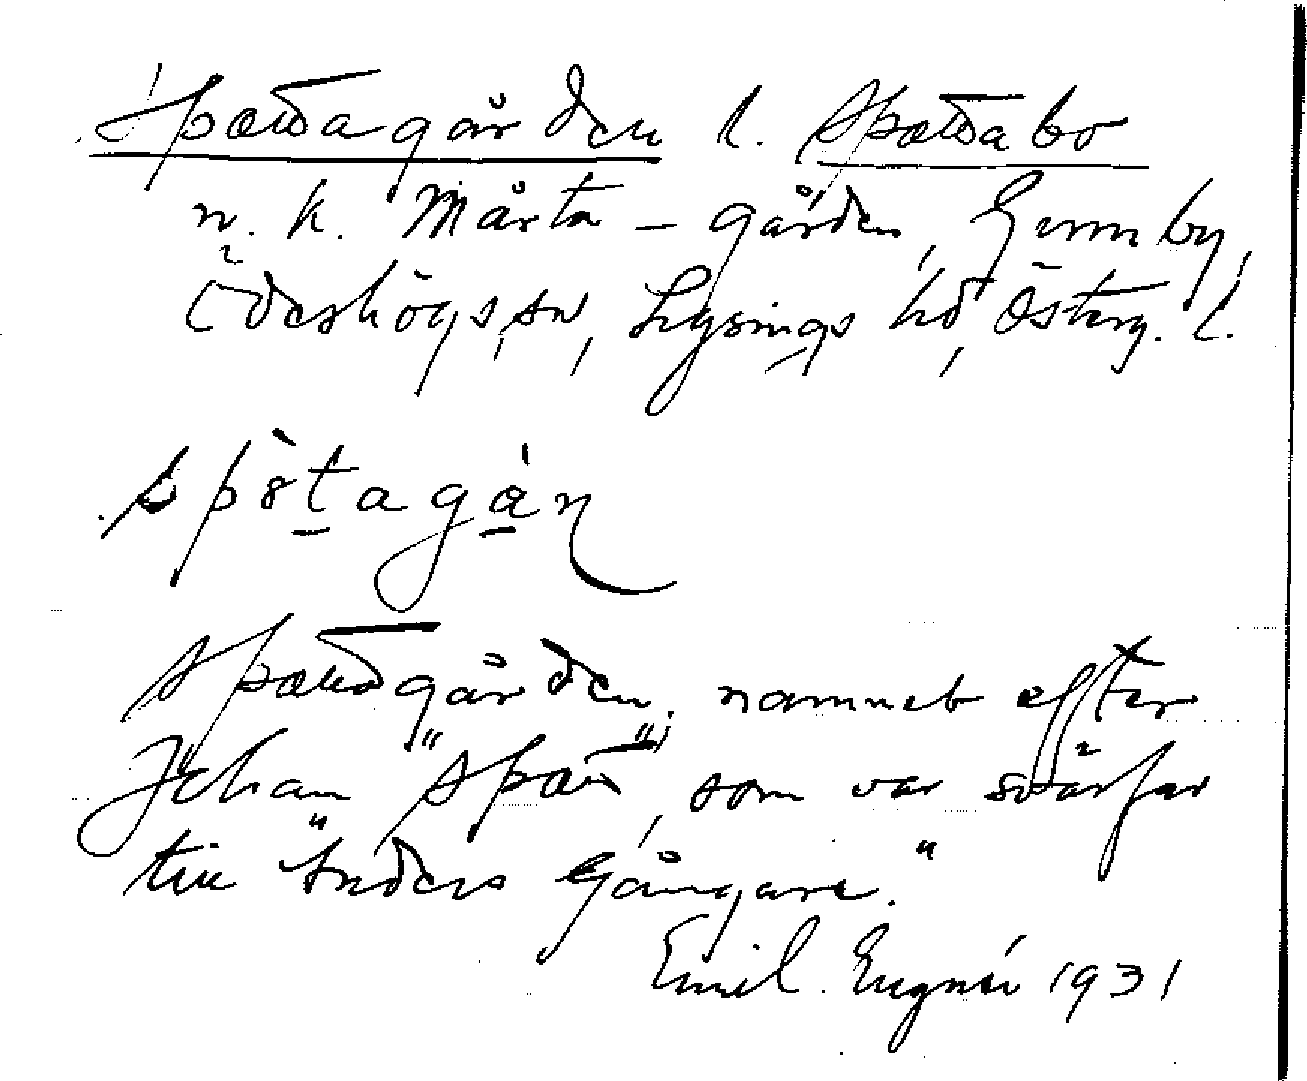 Spaddagården l. Spaddabo
n. k. Mårta-gården, Gummby,
Ödeshögs sn, Lysings hd, Österg. l.
spøtagán
Spaddgården, namnet efter
Johan "Spadd", som var svärfar
till "Anders Gångare."
Emil 1931